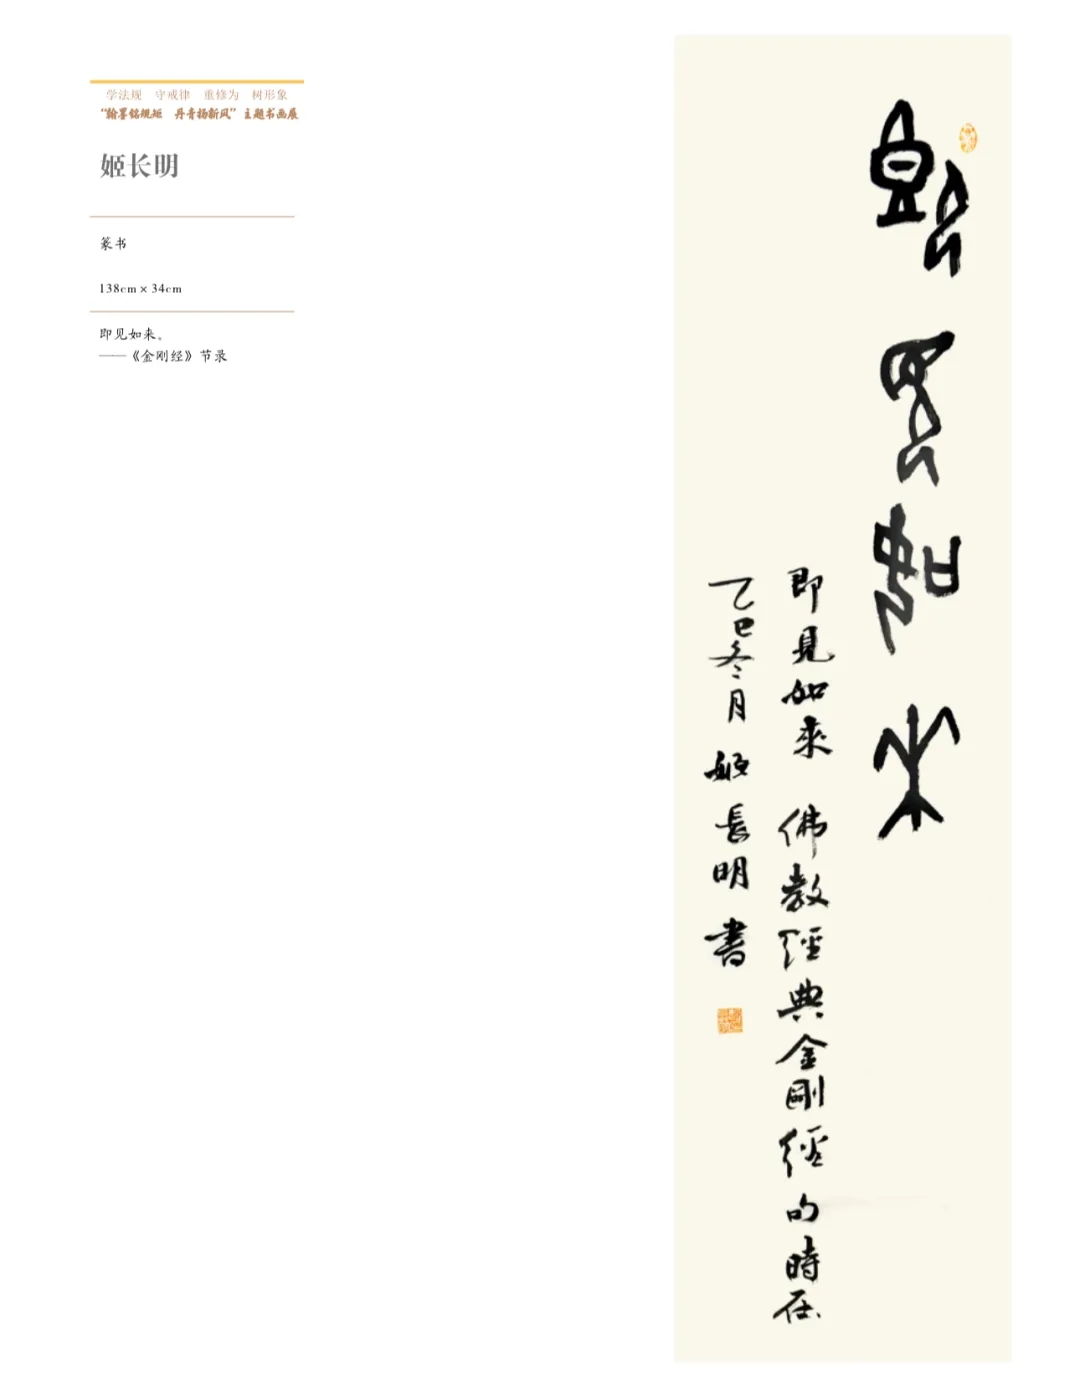 学法规 守戒律 重修为 树形象
“翰墨铭规矩 丹青扬新风”主题书画展
姬长明
篆书
138cm × 34cm
即见如来。
——《金刚经》节录
即見如来
即見如來 佛教經典金剛經的時在
乙巳冬月 姬長明書